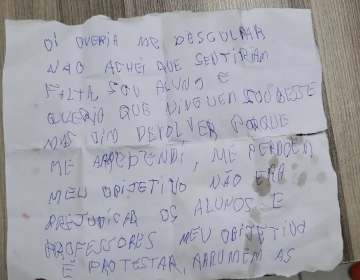 OI QUERIA ME DESCULPAR
NÃO ACHEI QUE SENTIRIAM
FALTA SOU ALUNO E
QUERIA QUE NINGUEM SOUBESSE
MAS VIM DEVOLVER PORQUE
ME ARREPENDI, ME PERDOEM
MEU OBIJETIVO NÃO ERA
PREJUDICAR OS ALUNOS E
PROFESSORES MEU OBIJETIVO
É PROTESTAR, ARRUMEM AS